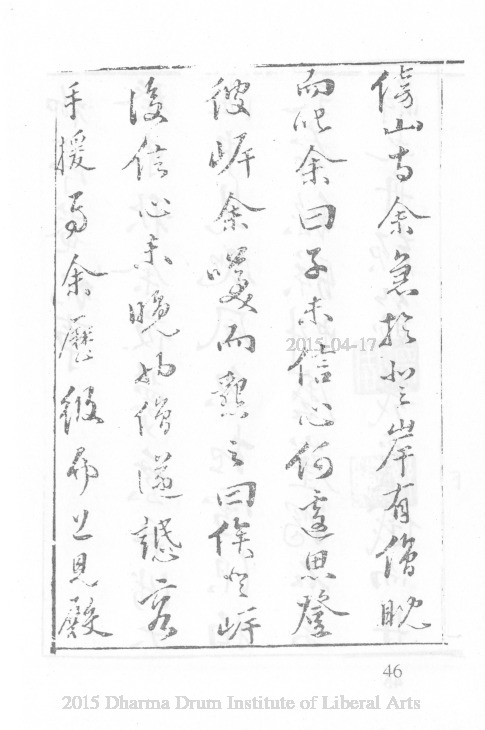 傍山寺余急於登岸有僧眈
而叱余曰子未信心何遽思登
彼岸余而懇之曰俟登岸
後信心未晚也僧遂
手援焉余歷級而上見殿
2015-04-17
46
2015 Dharma Drum Institute of Liberal Arts